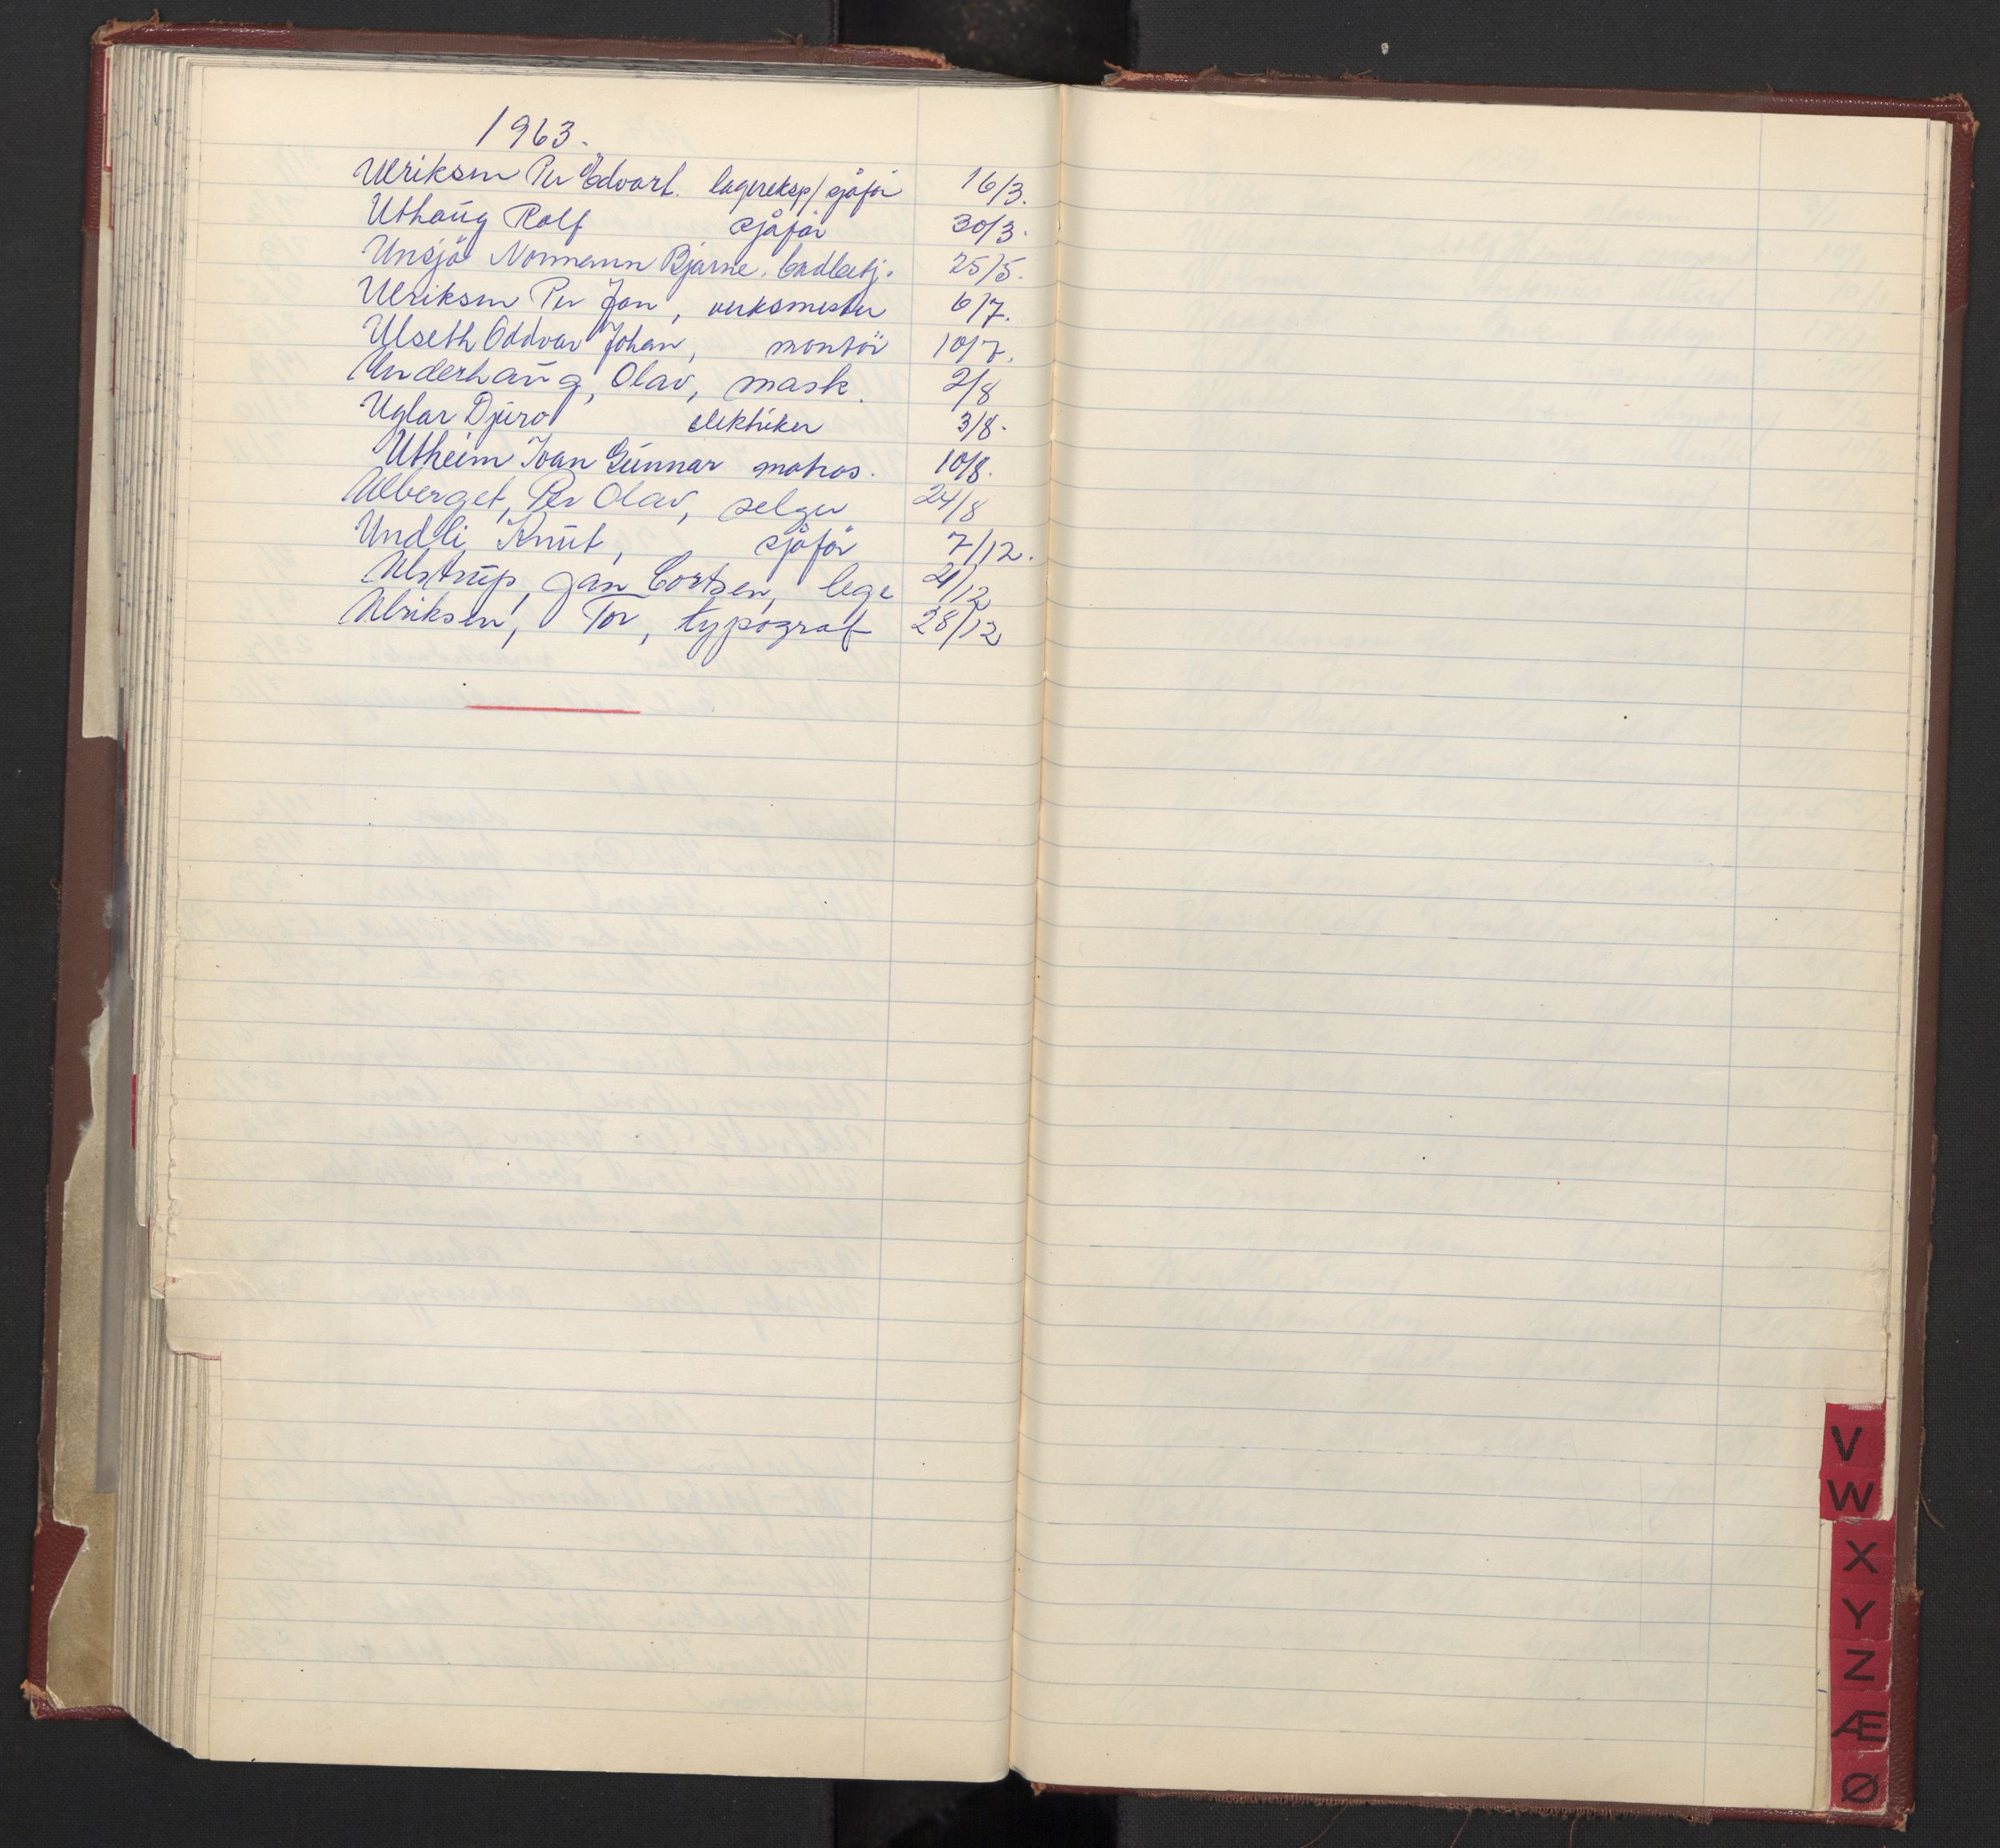 1963.
Ulriksen Per Edvart. lagereksp/sjåför 16/3.
Uthaug Rolf sjåför 30/3.
Unsjö Normann Bjarne. 25/5.
Ulriksen Per Jan, verksmester 6/7.
Ulseth Oddvar Johan, montör 10/7.
Underhaug, Olav, mask. 2/8
Uglar Djuro elektriker 3/8.
Utheim Ivan Gunnar matros. 10/8.
Ulberget, Per Olav, selger 24/8
Undli Knut, sjåför 7/12.
Ulstrup, Jan Cortsen, lege 21/12
Ulriksen, Tor, typograf 28/12
V
W
X
Y
Z
Æ
Ø